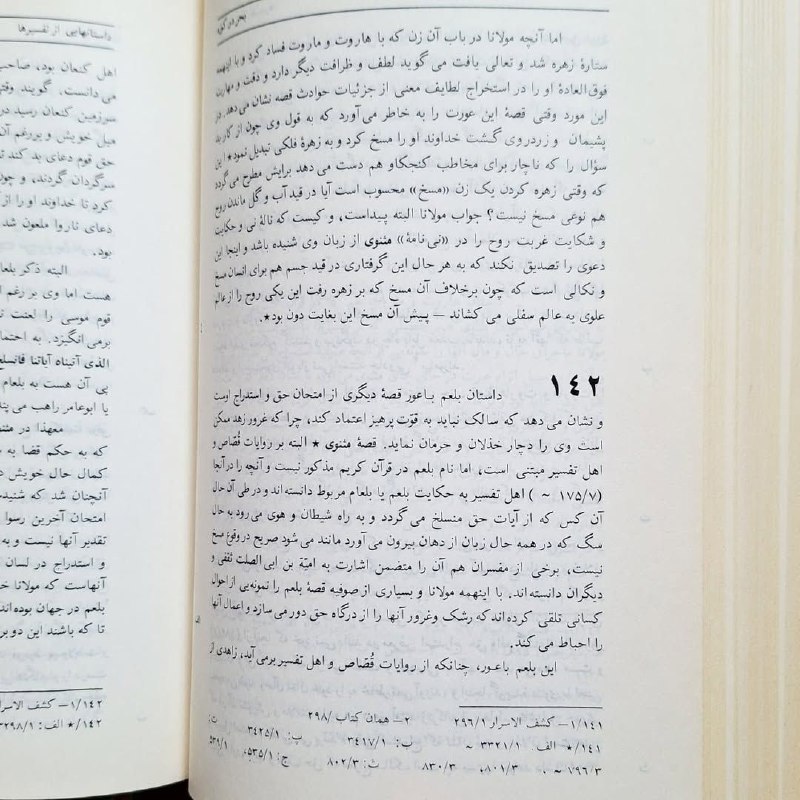 بحر در کوزه
اما آنچه مولانا در باب آن زن که با هاروت و ماروت فساد کرد و با اینهمه
ستارهٔ زهره شد و تعالی یافت می گوید لطف و ظرافت دیگر دارد و دقت و مهارت
فوق‌العادهٔ او را در استخراج لطایف معنی از جزئیات حوادث قصه نشان می دهد. در
این مورد وقتی قصهٔ این عورت را به خاطر می‌آورد که به قول وی چون از کار بد
پشیمان و زردروی گشت خداوند او را مسخ کرد و به زهرهٔ فلکی تبدیل نمود* این
سؤال را که ناچار برای مخاطب کنجکاو هم دست می دهد برایش مطرح می گردد
که وقتی زهره کردن یک زن «مسخ» محسوب است آیا در قید آب و گل ماندن روح
هم نوعی مسخ نیست؟ جواب مولانا البته پیداست، و کیست که نالهٔ نی و حکایت
و شکایت غربت روح را در «نی‌نامهٔ» مثنوی از زبان وی شنیده باشد و اینجا این
دعوی را تصدیق نکند که به هر حال این گرفتاری در قید جسم هم برای انسان مسخ
و نکالی است که چون برخلاف آن مسخ که بر زهره رفت این یکی روح را از عالم
علوی به عالم سفلی می کشاند — پیش آن مسخ این بغایت دون بود*.
۱۴۲ داستان بلعم باعور قصهٔ دیگری از امتحان حق و استدراج اوست
و نشان می دهد که سالک نباید به قوّت پرهیز اعتماد کند، چرا که غرور زهد ممکن
است وی را دچار خذلان و حرمان نماید. قصهٔ مثنوی * البته بر روایات قُصّاص و
اهل تفسیر مبتنی است، اما نام بلعم در قرآن کریم مذکور نیست و آنچه را در آنجا
(۱۷۵/۷ ~ ) اهل تفسیر به حکایت بلعم یا بلعام مربوط دانسته اند و در طی آن حال
آن کس که از آیات حق منسلخ می گردد و به راه شیطان و هوی می رود به حال
سگ که در همه حال زبان از دهان بیرون می آورد مانند می شود صریح در وقوع مسخ
نیست، برخی از مفسران هم آن را متضمن اشارت به امیّة بن ابی الصلت ثقفی و
دیگران دانسته اند. با اینهمه مولانا و بسیاری از صوفیه قصهٔ بلعم را نمونه‌یی از احوال
کسانی تلقی کرده‌اند که رشک و غرور آنها را از درگاه حق دور می سازد و اعمال آنها
را احباط می کند.
این بلعم باعور، چنانکه از روایات قُصّاص و اهل تفسیر برمی آید، زاهدی از
۱/۱۴۱— کشف الاسرار ۲۹۶/۱ ۲— همان کتاب /۲۹۸
*/۱۴۱ الف: ۳۳۲۱/۱ ~ ب: ۳۴۱۷/۱ پ: ۳۴۲۵/۱ ت:
۷۹۶/۳ ~ ، ۸۰۱/۳، ۸۳۰/۳ ث: ۸۰۲/۳ ج: ۵۳۵/۱، ۵۳۹/۱
داستانهایی از تفسیرها
اهل کنعان بود، صاحب
می دانست. گویند وقتی
سرزمین کنعان رسید در
میل خویش و بررغم آن
حق قوم دعای بد کند تا
سرگردان گردند، و چون
کرد تا خداوند او را از
دعای ناروا ملعون شد
بود.
البته ذکر بلعام
هست اما وی بر رغم ا
قوم موسی را لعنت ن
برمی انگیزد. به احتما
الذی آتیناه آیاتنا فانسلخ
پی آن هست به بلعام
یا ابوعامر راهب می پند
معهذا در مثنو
که به حکم قضا به س
کمال حال خویش د
آنچنان شد که شنید
امتحان آخرین رسوا
تقدیر آنها نیست و به
و استدراج در لسان
آنهاست که مولانا خ
بلعم در جهان بوده‌اند
تا که باشند این دو بر
۱/۱۴۲— کشف الاسرار
*/۱۴۲ الف: ۳۲۹۸/۱